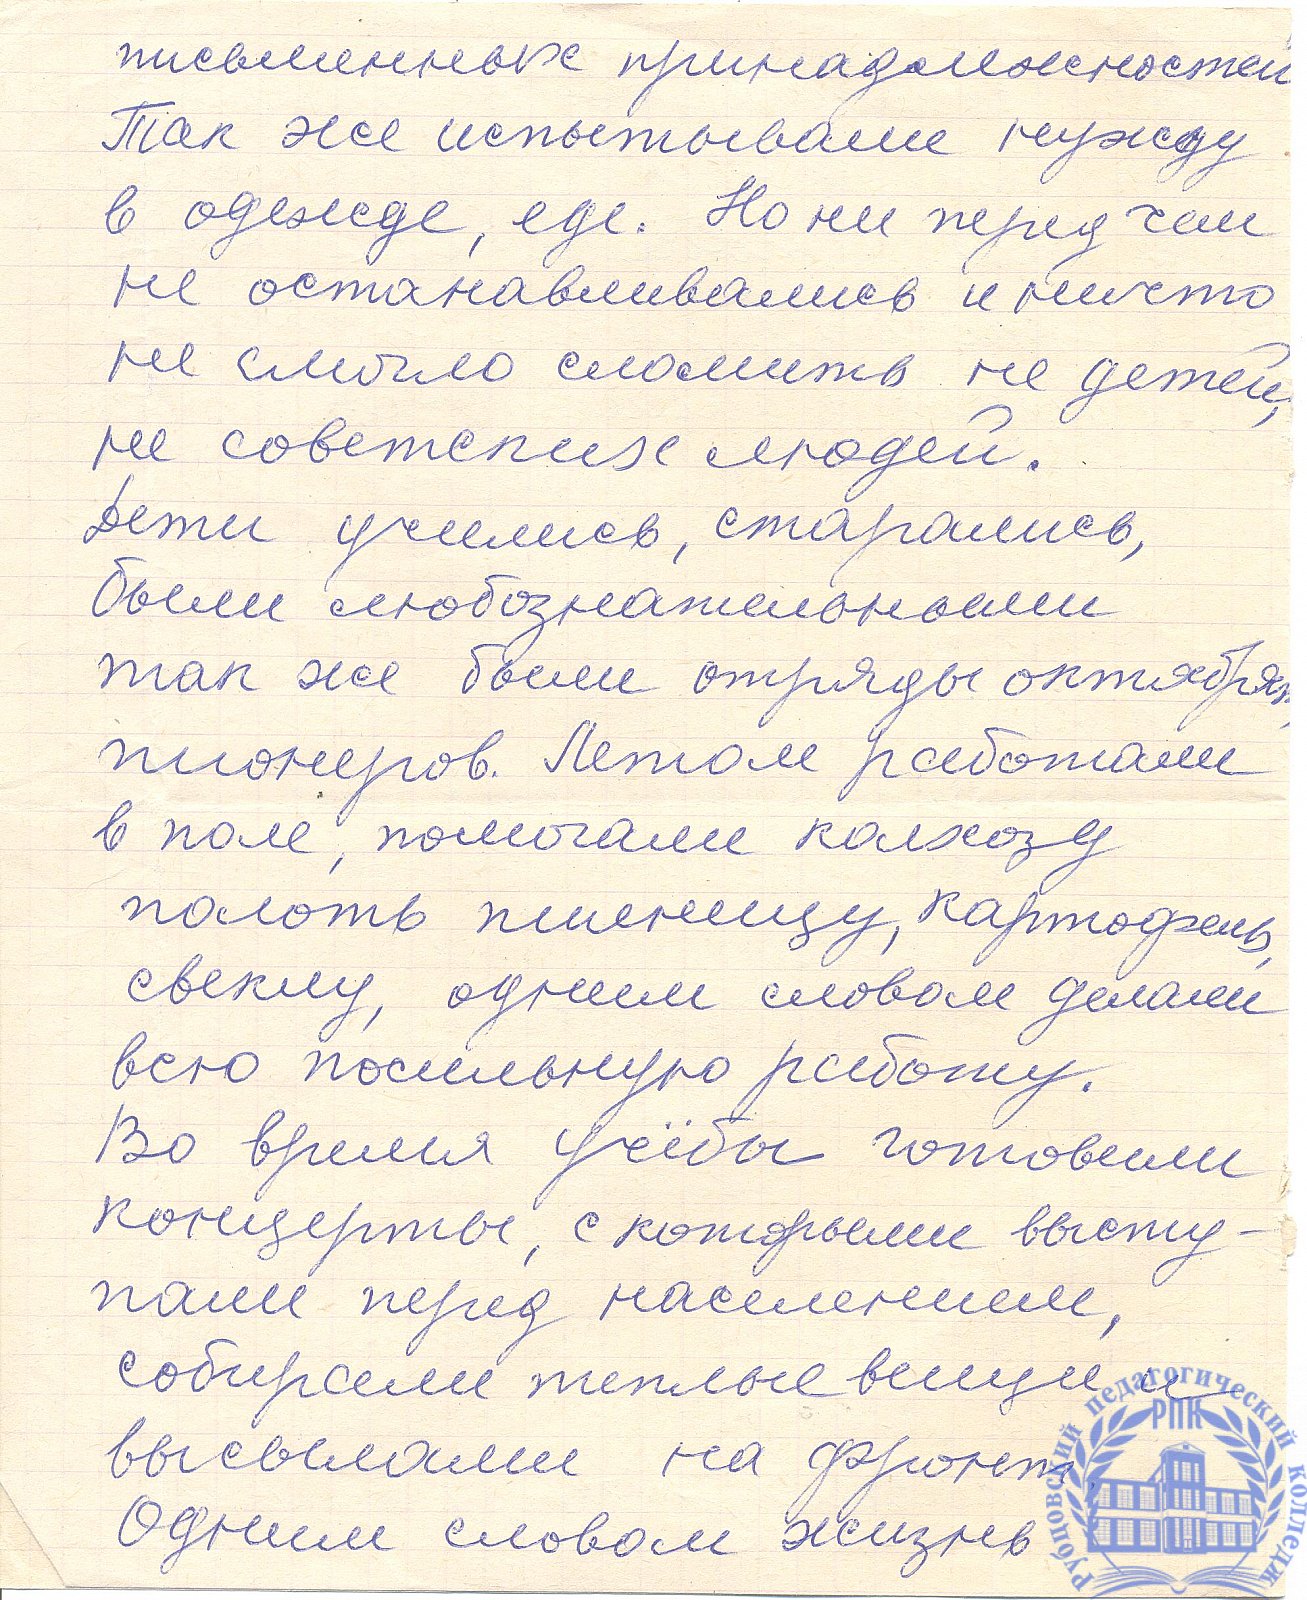 письменных принадлежностей
Так же испытывали нужду
в одежде, еде. Но ни перед чем
не останавливались и ничто
не смогло сломить не детей,
не советских людей.
Дети учились, старались,
были любознательными
так же были отряды октябрят,
пионеров. Летом работали
в поле, помогали колхозу
полоть пшеницу, картофель,
свеклу, одним словом делали
всю посильную работу.
Во время учёбы готовили
концерты, с которыми высту-
пали перед населением,
собирали теплые вещи и
высылали на фронт.
Одним словом жизнь
Рубцовский педагогический колледж
РПК